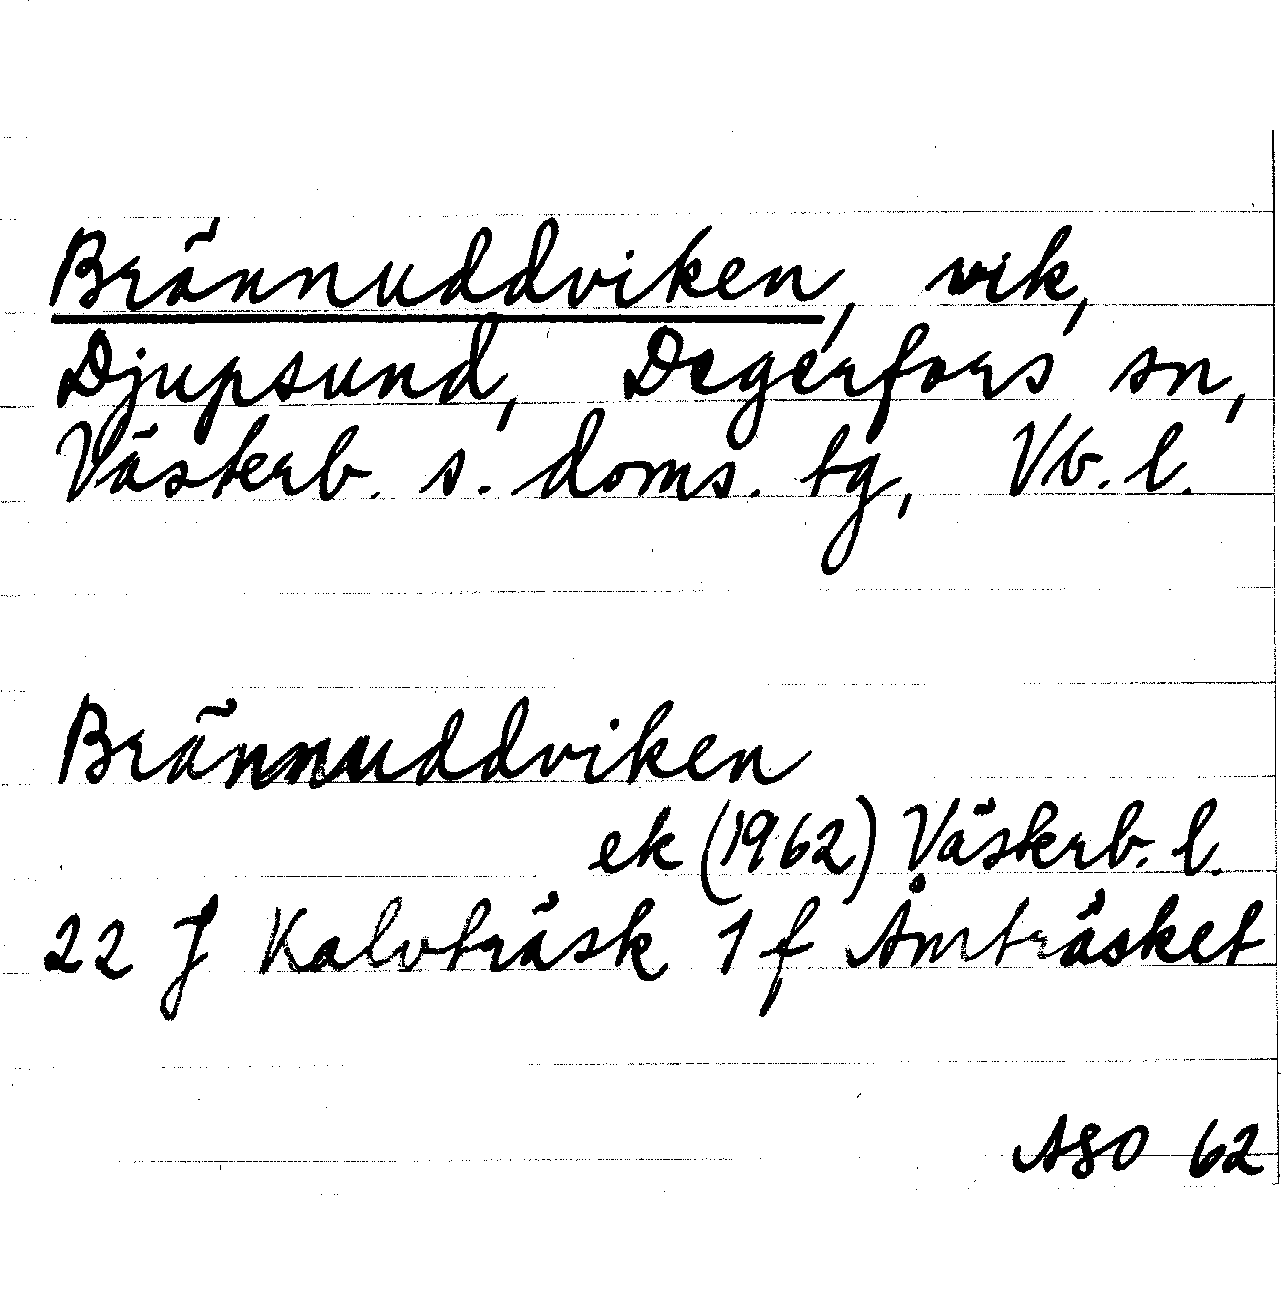 Brännuddviken, vik,
Djupsund, Degerfors sn,
Västerb. s. doms. tg, Vb. l.
Brännuddviken
ek (1962) Västerb. l.
22 J Kalvträsk 1 f Åmträsket
ASO 62